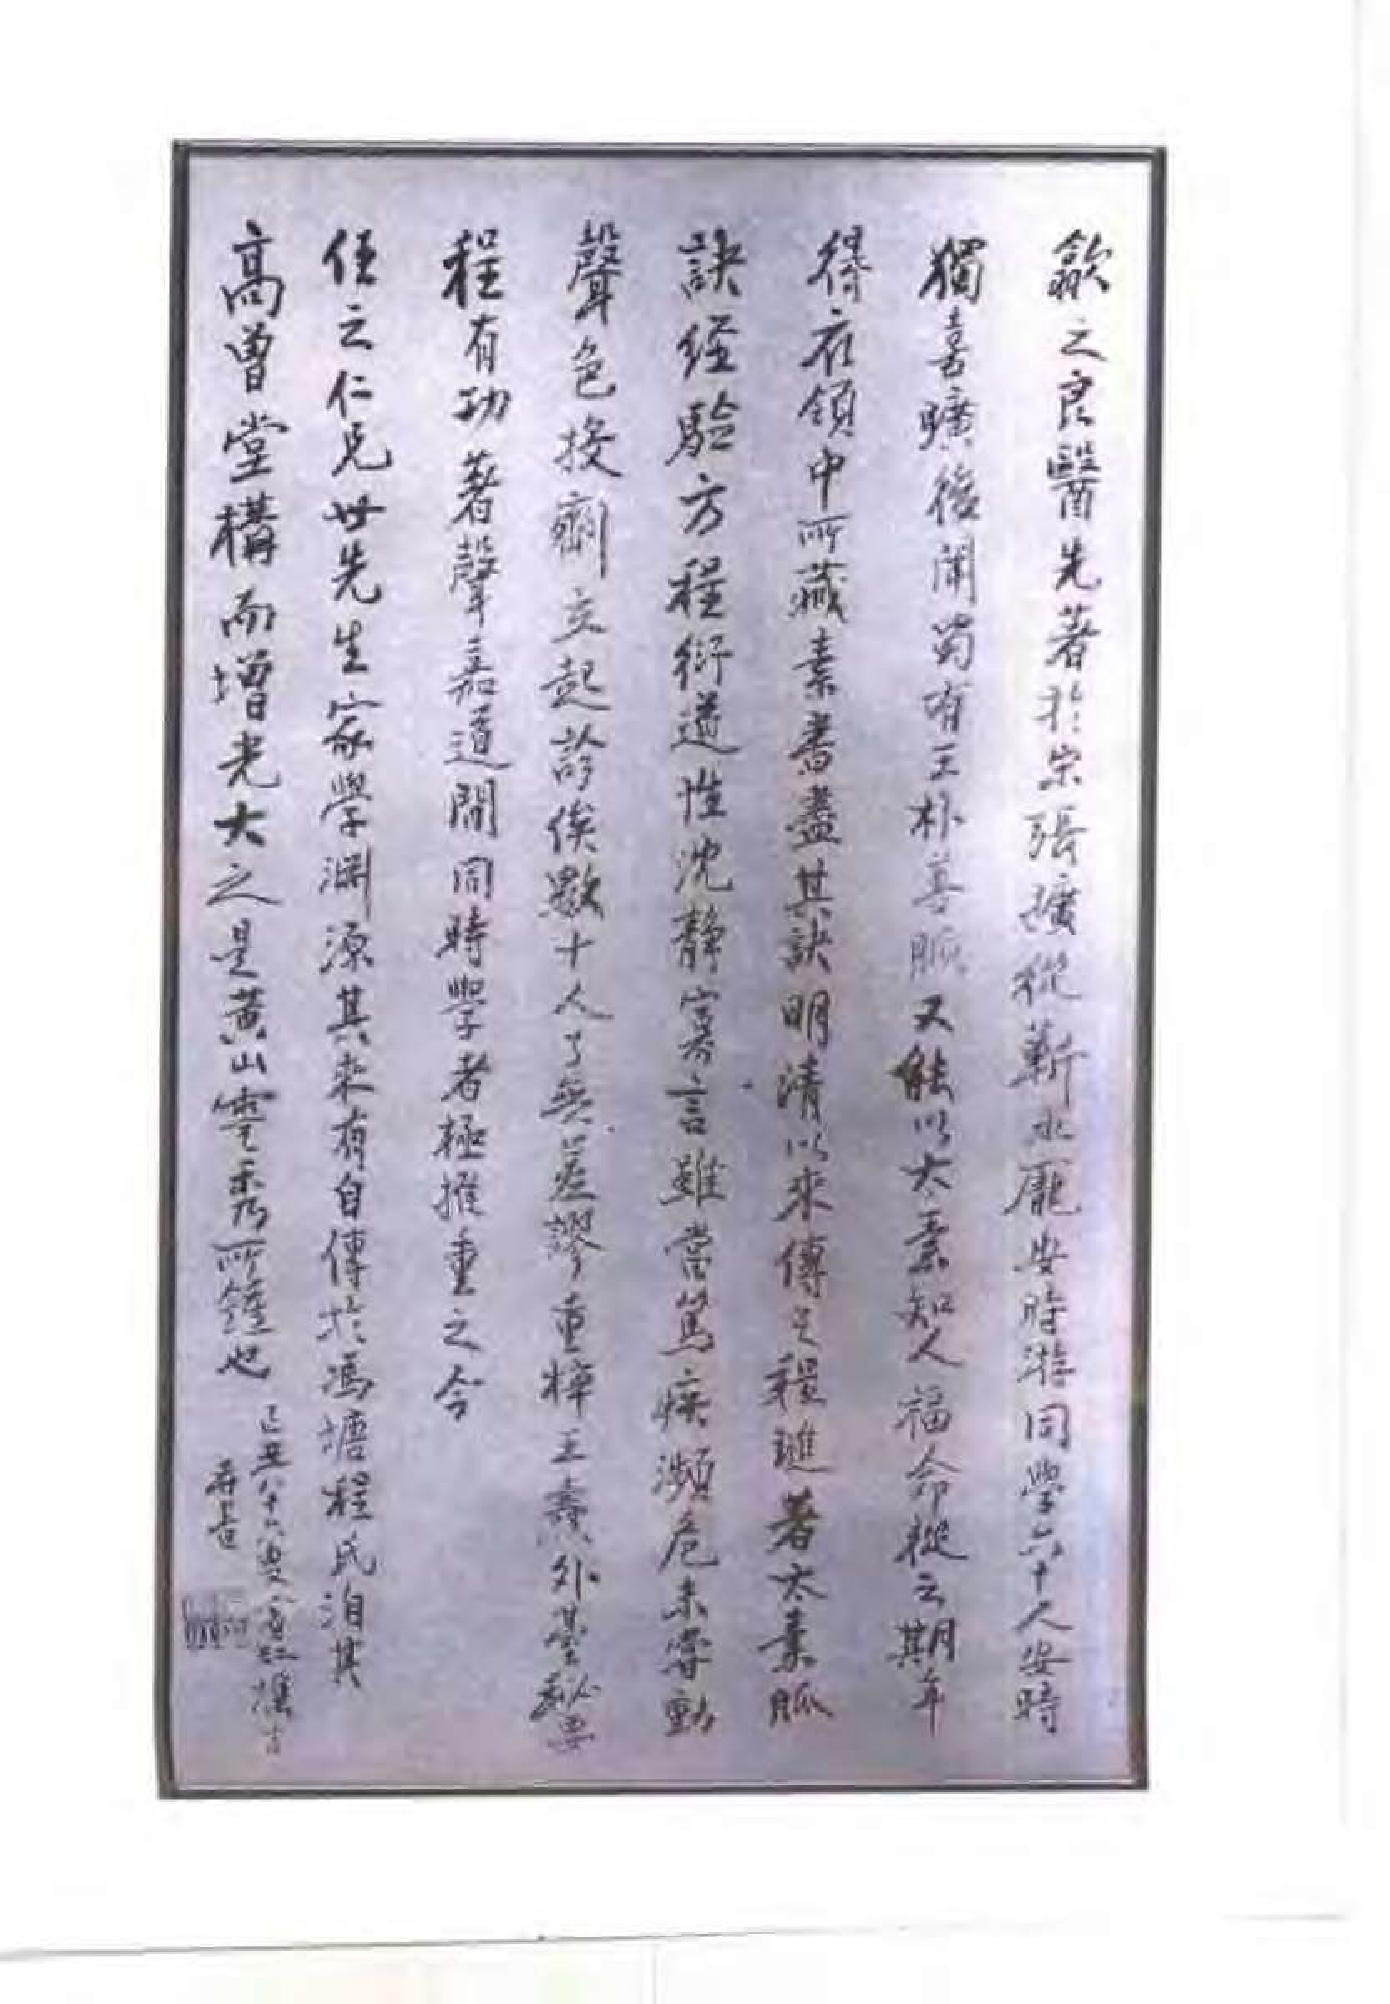 歙之良醫先著於宋張擴從蘄水龐安時游同學六十人安時
獨喜擴後聞蜀有王朴善脈又能以太素知人福命從之期年
得衣領中所藏素書盡其訣明清以來傳之程璡著太素脈
訣经驗方程衍道性沈靜寡言雖當篤疾瀕危未嘗動
聲色投劑立起診候數十人了無差謬重梓王燾外臺秘要
程有功著聲嘉道間同時學者極推重之今
任之仁兄世先生家學淵源其來有自傳於馮塘程氏洎其
高曾堂構而增光大之是黃山靈秀所鍾也
己丑八十六叟黃賓虹